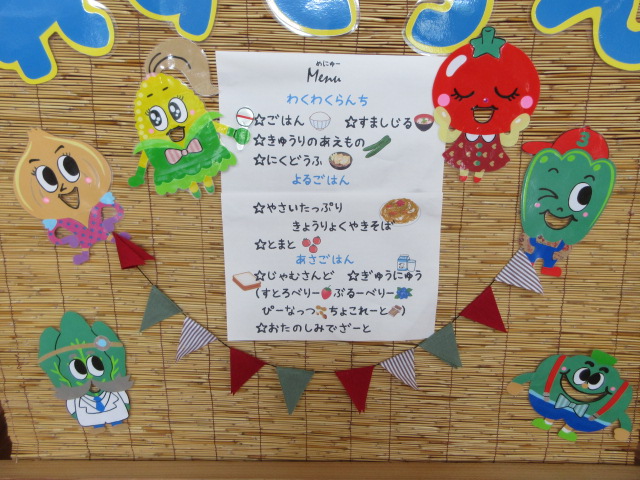 めにゅー
Menu
わくわくらんち
☆ごはん ☆すましじる
☆きゅうりのあえもの
☆にくどうふ
よるごはん
☆やさいたっぷり
きょうりょくやきそば
☆とまと
あさごはん
☆じゃむさんど ☆ぎゅうにゅう
(すとろべりー ぶるーべりー
ぴーなっつ ちょこれーと)
☆おたのしみでざーと
3